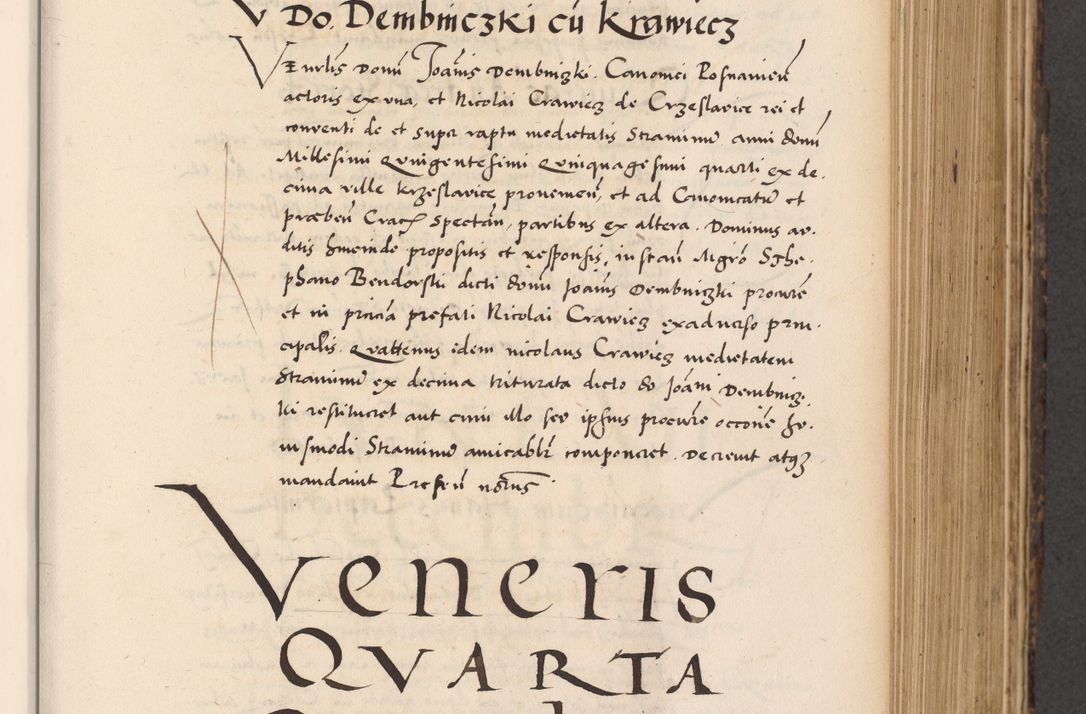 Do. Dembinczki cū Krawiecz
Venrlis Domī Joānis Dembniczki. Canonici Posnanien̄
actoris ex una, et Nicolai Crawiecz de Crzeslavice rei et
conventi de et super raptu medietatis Straminū anni domī
Millesimi Quingentesimi Quinquagesimi quarti ex de.
cima ville Krzeslavice provenien̄, et ad Canonicatū et
præben̄ Crac̄ Spectān, partibus ex altera. Dominus au.
ditis hincinde propositis et responsis, instan̄ Mgrō Sthe.
phano Bendorski dicti domī Joānis Dembniczki procurē
et in prēciā prefati Nicolai Crawiecz exadverso prin.
cipalis. Quattenus idem nicolaus Crawiecz medietatem
Straminū ex decima triturata dicto do Joāni Dembnicz.
ki restitueret aut cum illo seo ipsius procurē occōne hu.
iusmodi Straminū amicablr̄ componeret. Decrevit atqz
mandavit Presen̄ notrus
Veneris
QVARTA